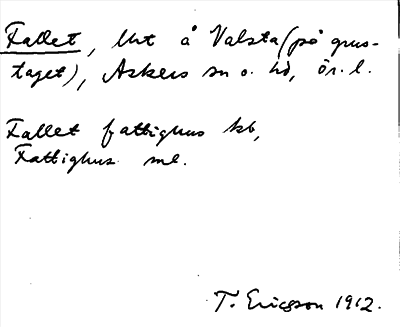 Fallet, lht å Valsta (på grus-
taget), Askers sn o. hd, ör. l.
Fallet fattighus kb,
Fattighus ml.
T. Ericsson 1912.